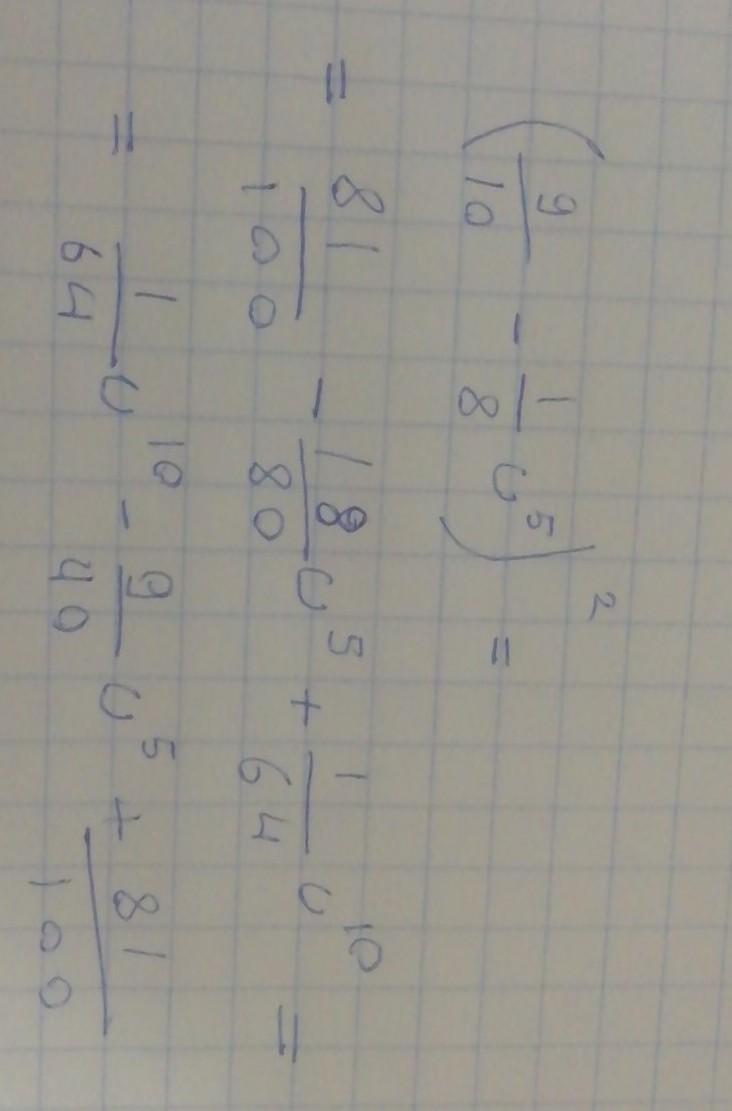 (9/10 - 1/8 u^5)^2 =
= 81/100 - 18/80 u^5 + 1/64 u^10 =
= 1/64 u^10 - 9/40 u^5 + 81/100